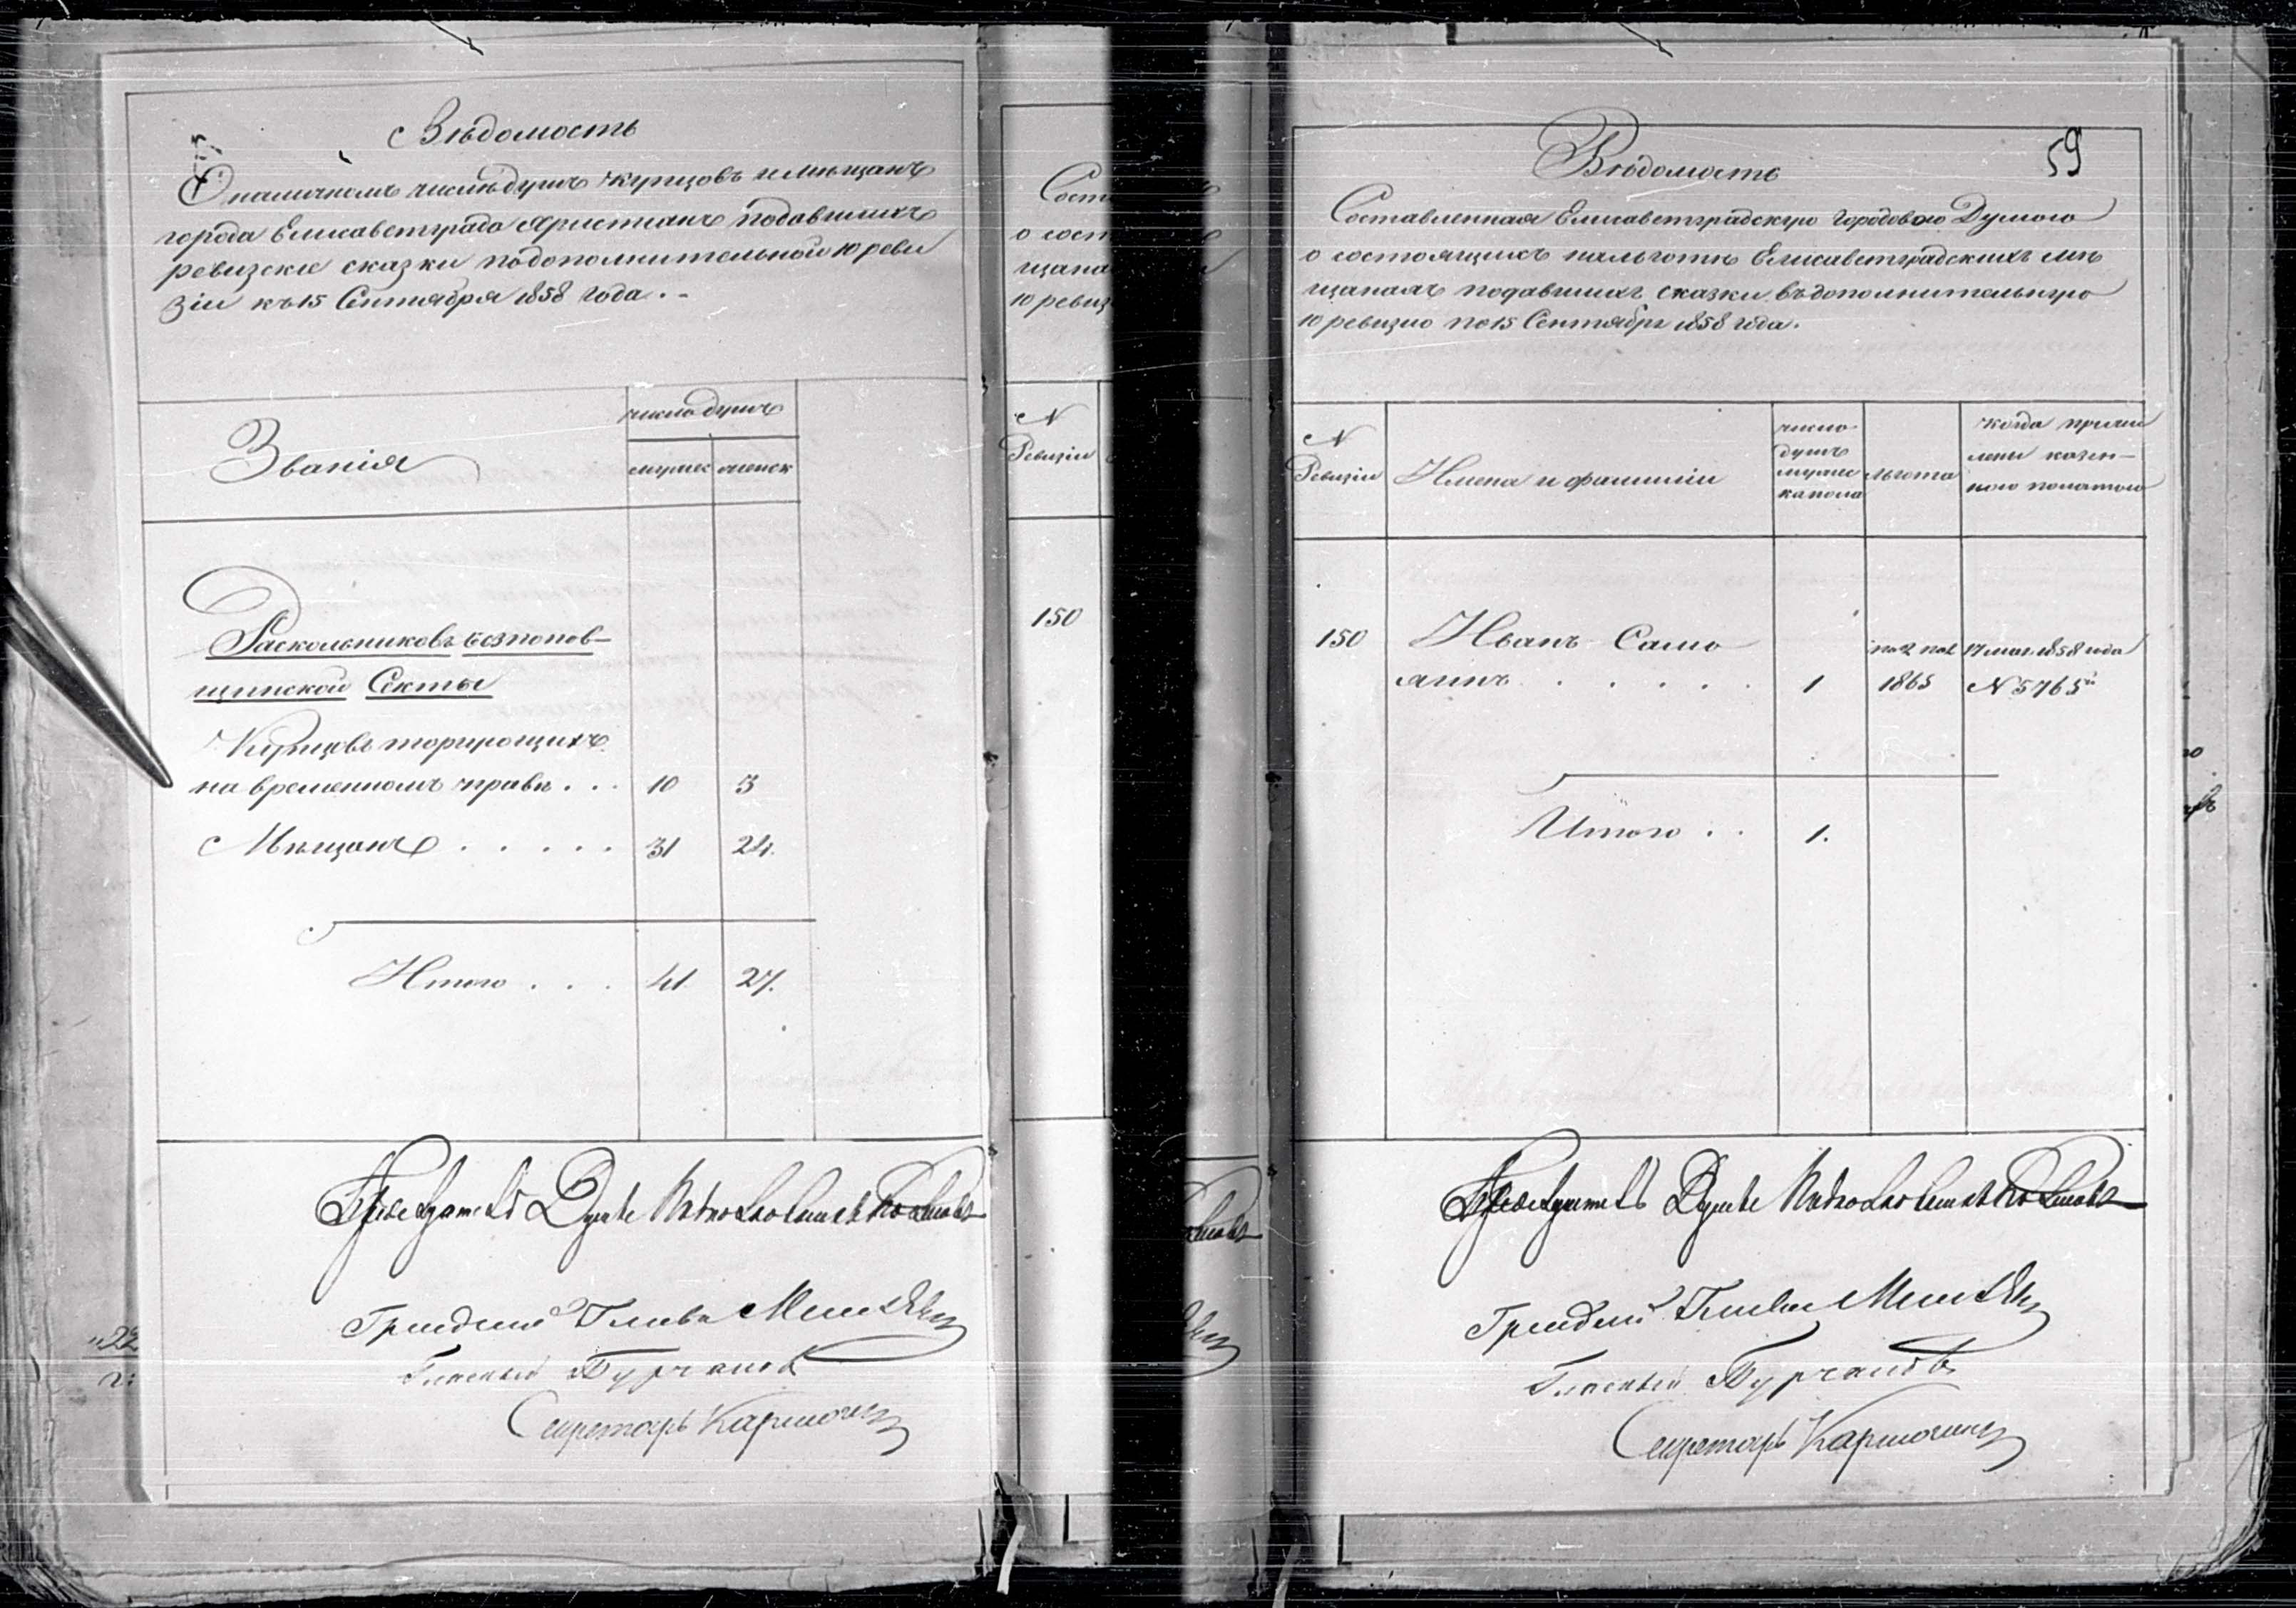 Вѣдомость
О наличномъ числѣ душъ купцовъ и мѣщанъ
города Елисаветграда Христианъ подавшихъ
ревизские сказки по дополнительной 10 реви
зіи къ 15 Сентября 1858 года. -
Званія
число душъ
мужес женск
Раскольниковъ безпопов-
щинской Секты
Купцовъ торгующихъ
на временномъ правѣ . . . 10 3
Мѣщанъ . . . . . 31 24.
Итого . . . 41 27.
Предсѣдатель Думы
Градской Глава
Гласный Бурчановъ
Секретарь
Сост
о сост
щана
10 ревиз
N
Ревизіи
150
59
Вѣдомость
Составленная Елисаветградскую городовою Думою
о состоящихъ на льготѣ Елисаветградскихъ мѣ
щанахъ подавшихъ сказки въ дополнительную
10 ревизию по 15 Сентября 1858 года.
N
Ревизіи
Имена и фамиліи
число
душъ
мужес
каго пола
льгота
когда причи
лены казен-
ною полатою
150 Иванъ Само по 2 пол 17 мая 1858 года
янинъ . . . . . . 1 1865 N 5765й
Итого . . 1.
Предсѣдатель Думы
Градской Глава
Гласный Бурчановъ
Секретарь